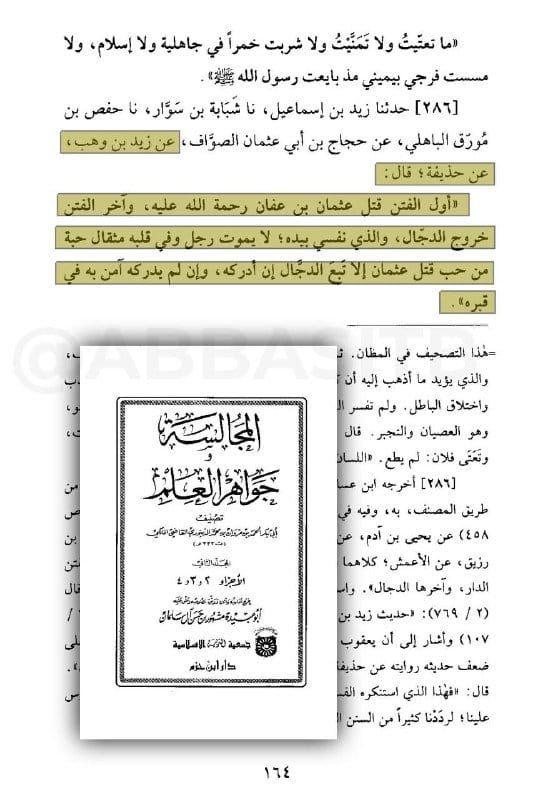 «ما تعتّيتُ ولا تَمَنَّيْتُ ولا شربت خمراً في جاهلية ولا إسلام، ولا
مسست فرجي بيميني مذ بايعت رسول الله ﷺ».
[٢٨٦] حدثنا زيد بن إسماعيل، نا شَبَابة بن سَوَّار، نا حفص بن
مُورّق الباهلي، عن حجاج بن أبي عثمان الصوَّاف، عن زيد بن وهب،
عن حذيفة؛ قال:
«أول الفتن قتل عثمان بن عفان رحمة الله عليه، وآخر الفتن
خروج الدجّال، والذي نفسي بيده؛ لا يموت رجل وفي قلبه مثقال حبة
من حب قتل عثمان إلا تَبعَ الدجَّال إن أدركه، وإن لم يدركه آمن به في
قبره».
@ABBASITB
=هذا التصحيف في المظان.
والذي يؤيد ما أذهب إليه أن
واختلاق الباطل. ولم تفسر
وهو العصيان والتجبر. قال
وتَعَتَّى فلان: لم يطع. «اللسان
[٢٨٦] أخرجه ابن
من
طريق المصنف، به، وفيه
٤٥٨) عن يحيى بن آدم، عن
بن
رزيق، عن الأعمش؛ كلاهما
الدار، وآخرها الدجال».
قال
(٢ / ٧٦٩): «حديث زيد بن
/
١٠٧) وأشار إلى أن يعقوب
ضعف حديثه روايته عن حذيفة
قال: «فهذا الذي استنكره
علينا؛ لردَدْنا كثيراً من السنن
المجالسة
و
جواهر العلم
تصنيف
المجلد الثاني
الأجزاء ٢ و ٣ و ٤
أبو عبيدة مشهور بن حسن آل سلمان
جمعية التربية الإسلامية
دار ابن حزم
١٦٤